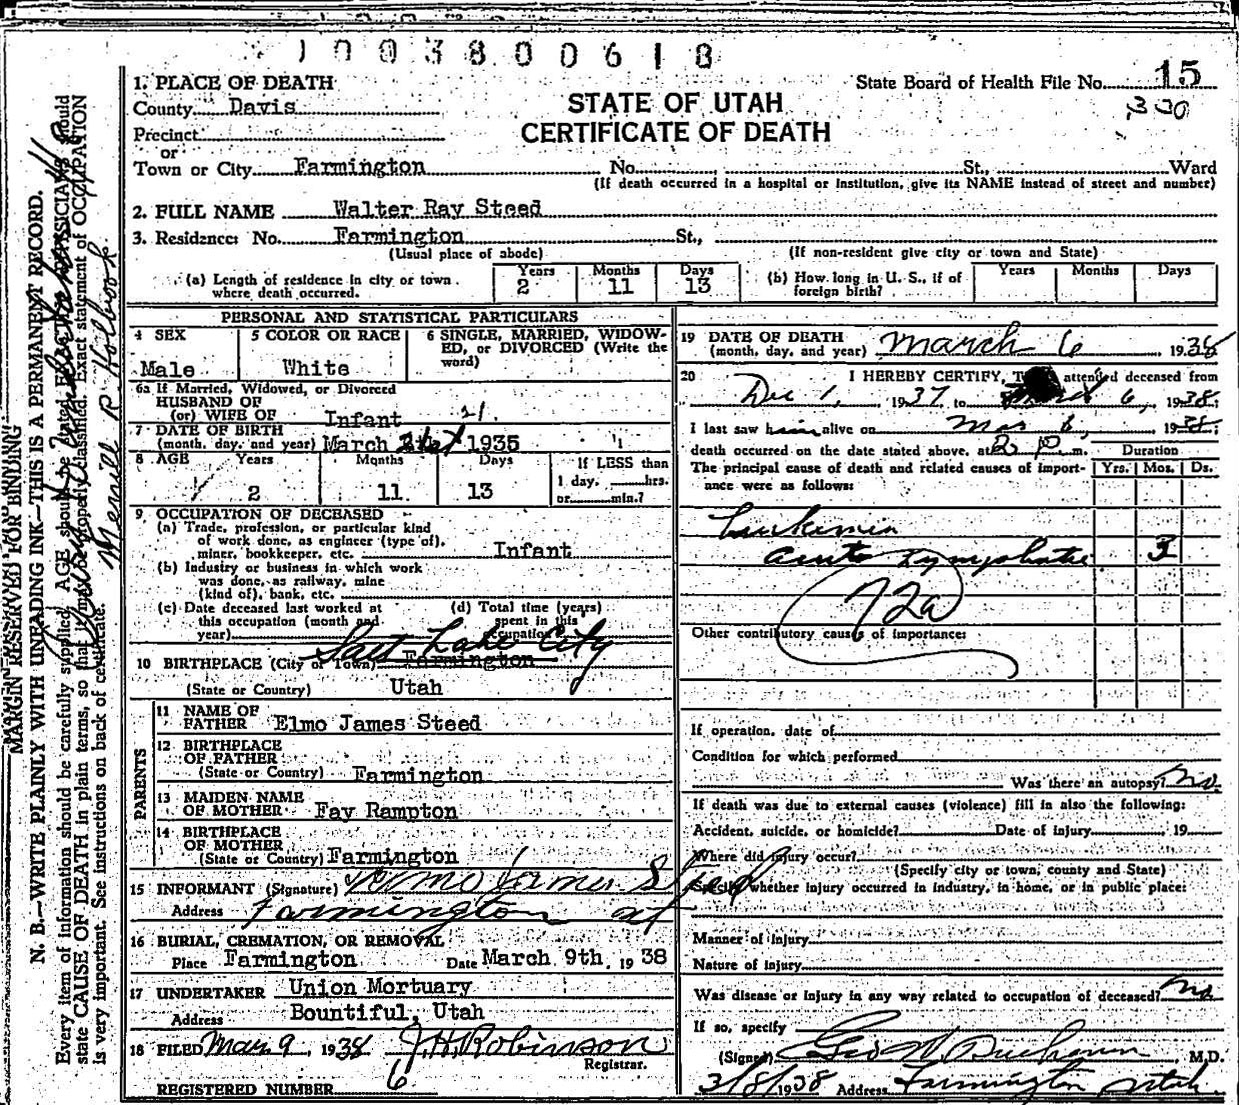 1003800618
1. PLACE OF DEATH
County Davis
Precinct
or
Town or City Farmington
State Board of Health File No. 15
330
STATE OF UTAH
CERTIFICATE OF DEATH
No. St., Ward
(If death occurred in a hospital or institution, give its NAME instead of street and number)
2. FULL NAME Walter Ray Steed
3. Residence: No. Farmington St.,
(Usual place of abode) (If non-resident give city or town and State)
(a) Length of residence in city or town where death occurred. Years 2 Months 11 Days 13
(b) How long in U. S., if of foreign birth? Years Months Days
PERSONAL AND STATISTICAL PARTICULARS
4 SEX Male
5 COLOR OR RACE White
6 SINGLE, MARRIED, WIDOW-
ED, or DIVORCED (Write the
word)
6a If Married, Widowed, or Divorced
HUSBAND OF
(or) WIFE OF Infant
7 DATE OF BIRTH
(month, day, and year) March 21 1935
8 AGE Years 2 Months 11 Days 13
If LESS than
1 day, hrs.
or min.?
9 OCCUPATION OF DECEASED
(a) Trade, profession, or particular kind
of work done, as engineer (type of),
miner, bookkeeper, etc. Infant
(b) Industry or business in which work
was done, as railway, mine
(kind of), bank, etc.
(c) Date deceased last worked at
this occupation (month and
year)
(d) Total time (years)
spent in this
occupation
Salt Lake City
10 BIRTHPLACE (City or Town) Farmington
(State or Country) Utah
PARENTS
11 NAME OF
FATHER Elmo James Steed
12 BIRTHPLACE
OF FATHER
(State or Country) Farmington
13 MAIDEN NAME
OF MOTHER Fay Rampton
14 BIRTHPLACE
OF MOTHER
(State or Country) Farmington
15 INFORMANT (Signature) Elmo James Steed
Address Farmington Ut
16 BURIAL, CREMATION, OR REMOVAL
Place Farmington Date March 9th, 1938
17 UNDERTAKER Union Mortuary
Address Bountiful, Utah
18 FILED Mar 9, 1938 J. H. Robinson
Registrar.
REGISTERED NUMBER 6
19 DATE OF DEATH
(month, day, and year) March 6 1938
20 I HEREBY CERTIFY, attended deceased from
Dec 1, 1937 to March 6, 1938.
I last saw him alive on Mar 6, 1938.
death occurred on the date stated above, at 2 P. m.
The principal cause of death and related causes of import-
ance were as follows:
Duration
Yrs. Mos. Ds.
Leukemia
acute Lymphatic 3
72a
Other contributory causes of importance:
If operation, date of
Condition for which performed
Was there an autopsy? No.
If death was due to external causes (violence) fill in also the following:
Accident, suicide, or homicide? Date of injury 19
Where did injury occur?
(Specify city or town, county and State)
Specify whether injury occurred in industry, in home, or in public place:
Manner of Injury
Nature of Injury
Was disease or injury in any way related to occupation of deceased? No
If so, specify
(Signed) Geo W. Buchanan, M.D.
3/8/1938 Address Farmington Utah
MARGIN RESERVED FOR BINDING
N. B.—WRITE PLAINLY WITH UNFADING INK—THIS IS A PERMANENT RECORD.
Every item of information should be carefully supplied. AGE should be PHYSICIANS should
state CAUSE OF DEATH in plain terms, so that it may be properly classified. Exact statement of OCCUPATION
is very important. See instructions on back of certificate.
Merrill R Holbrook